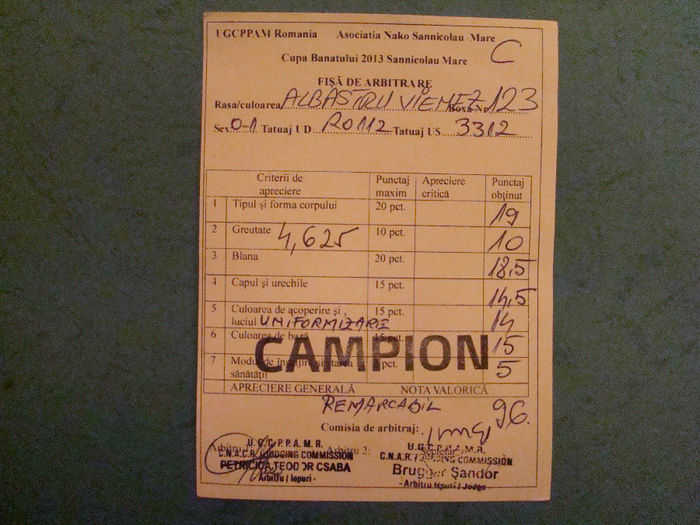 UGCPPAM Romania Asociatia Nako Sannicolau Mare
C
Cupa Banatului 2013 Sannicolau Mare
FIȘĂ DE ARBITRARE
Rasa/culoarea ALBASTRU VIENEZ Boxa Nr. 123
Sex 0-1 Tatuaj UD RO112 Tatuaj US 3312
Criterii de apreciere Punctaj maxim Apreciere critică Punctaj obținut
1 Tipul și forma corpului 20 pct. 19
2 Greutate 4,625 10 pct. 10
3 Blana 20 pct. 18,5
4 Capul și urechile 15 pct. 14,5
5 Culoarea de acoperire și luciul UNIFORMIZARE 15 pct. 14
6 Culoarea de bază 15 pct. 15
7 Modul de îngrijire și starea sănătății pct. 5
CAMPION
APRECIERE GENERALĂ NOTA VALORICĂ
REMARCABIL 96.
Comisia de arbitraj:
Arbitru 2:
U.G.C.P.P.A.M.R.
C.N.A.R. / JUDGING COMMISSION
PETRICICA TEODOR CSABA
- Arbitru / Iepuri -
U.G.C.P.P.A.M.R.
C.N.A.R. / JUDGING COMMISSION
Sandor
- Arbitru Iepuri / Judge -